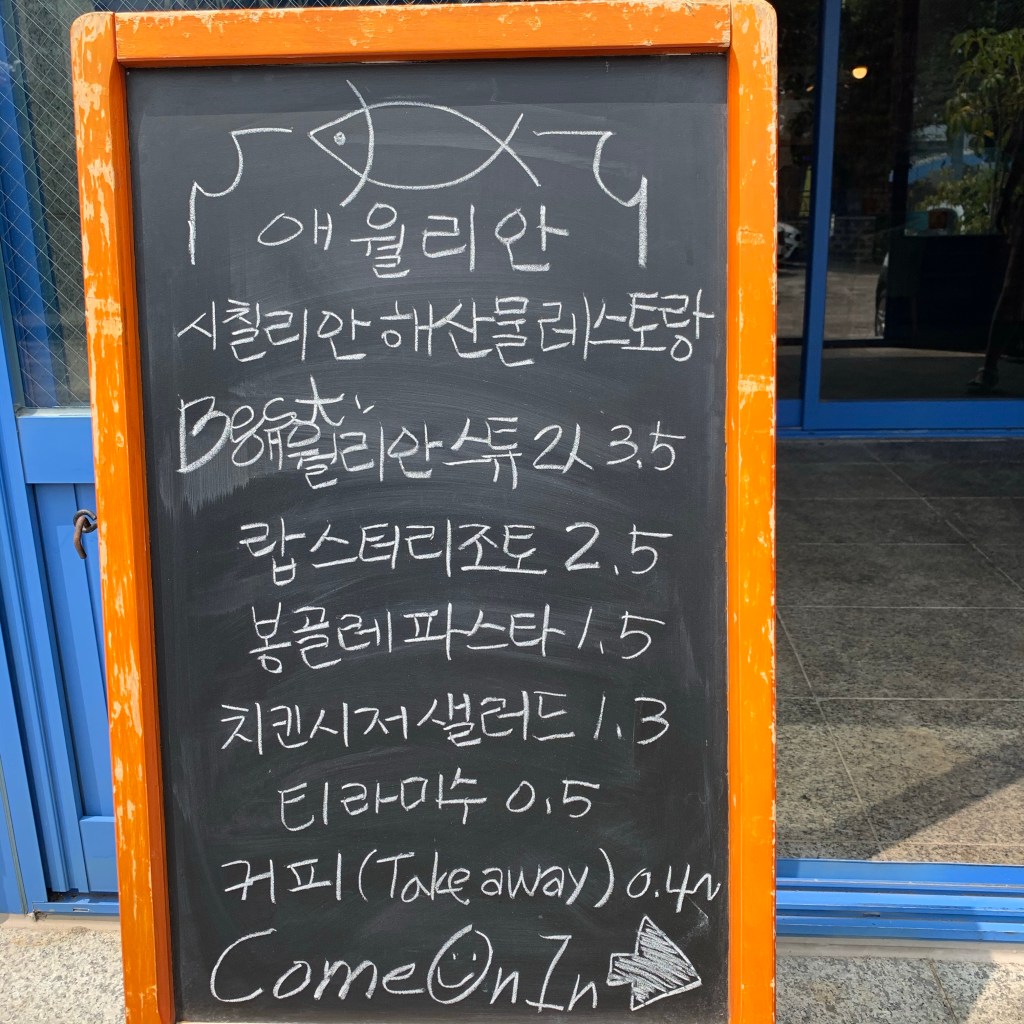 애월리안
시칠리안 해산물 레스토랑
Best 애월리안 스튜 2人 3.5
랍스터 리조또 2.5
봉골레 파스타 1.5
치킨 시저 샐러드 1.3
티라미수 0.5
커피 (Take away) 0.4~
Come On In